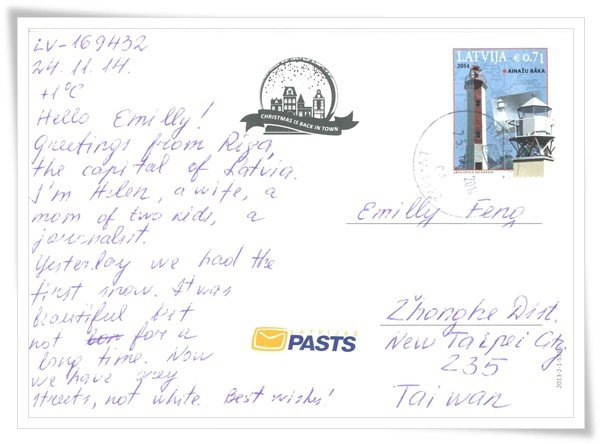 LV-169432
24.11.14.
+1°C
Hello Emilly!
Greetings from Riga,
the capital of Latvia.
I'm Helen, a wife, a
mom of two kids, a
journalist.
Yesterday we had the
first snow. It was
beautiful but
not for a
long time. Now
we have grey
streets, not white. Best wishes!
CHRISTMAS IS BACK IN TOWN
LATVIJA € 0.71
2014 AINAŽU BĀKA
Emilly Feng
Zhonghe Dist.
New Taipei City
235
Taiwan
LATVIJAS
PASTS